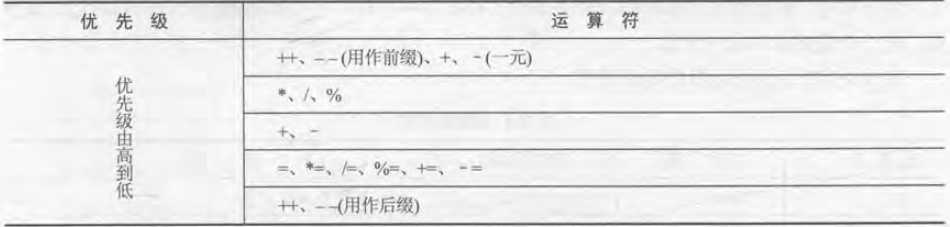 优先级 运算符
++、--(用作前缀)、+、-(一元)
优先级由高到低
*、/、%
+、-
=、*=、/=、%=、+=、-=
++、--(用作后缀)